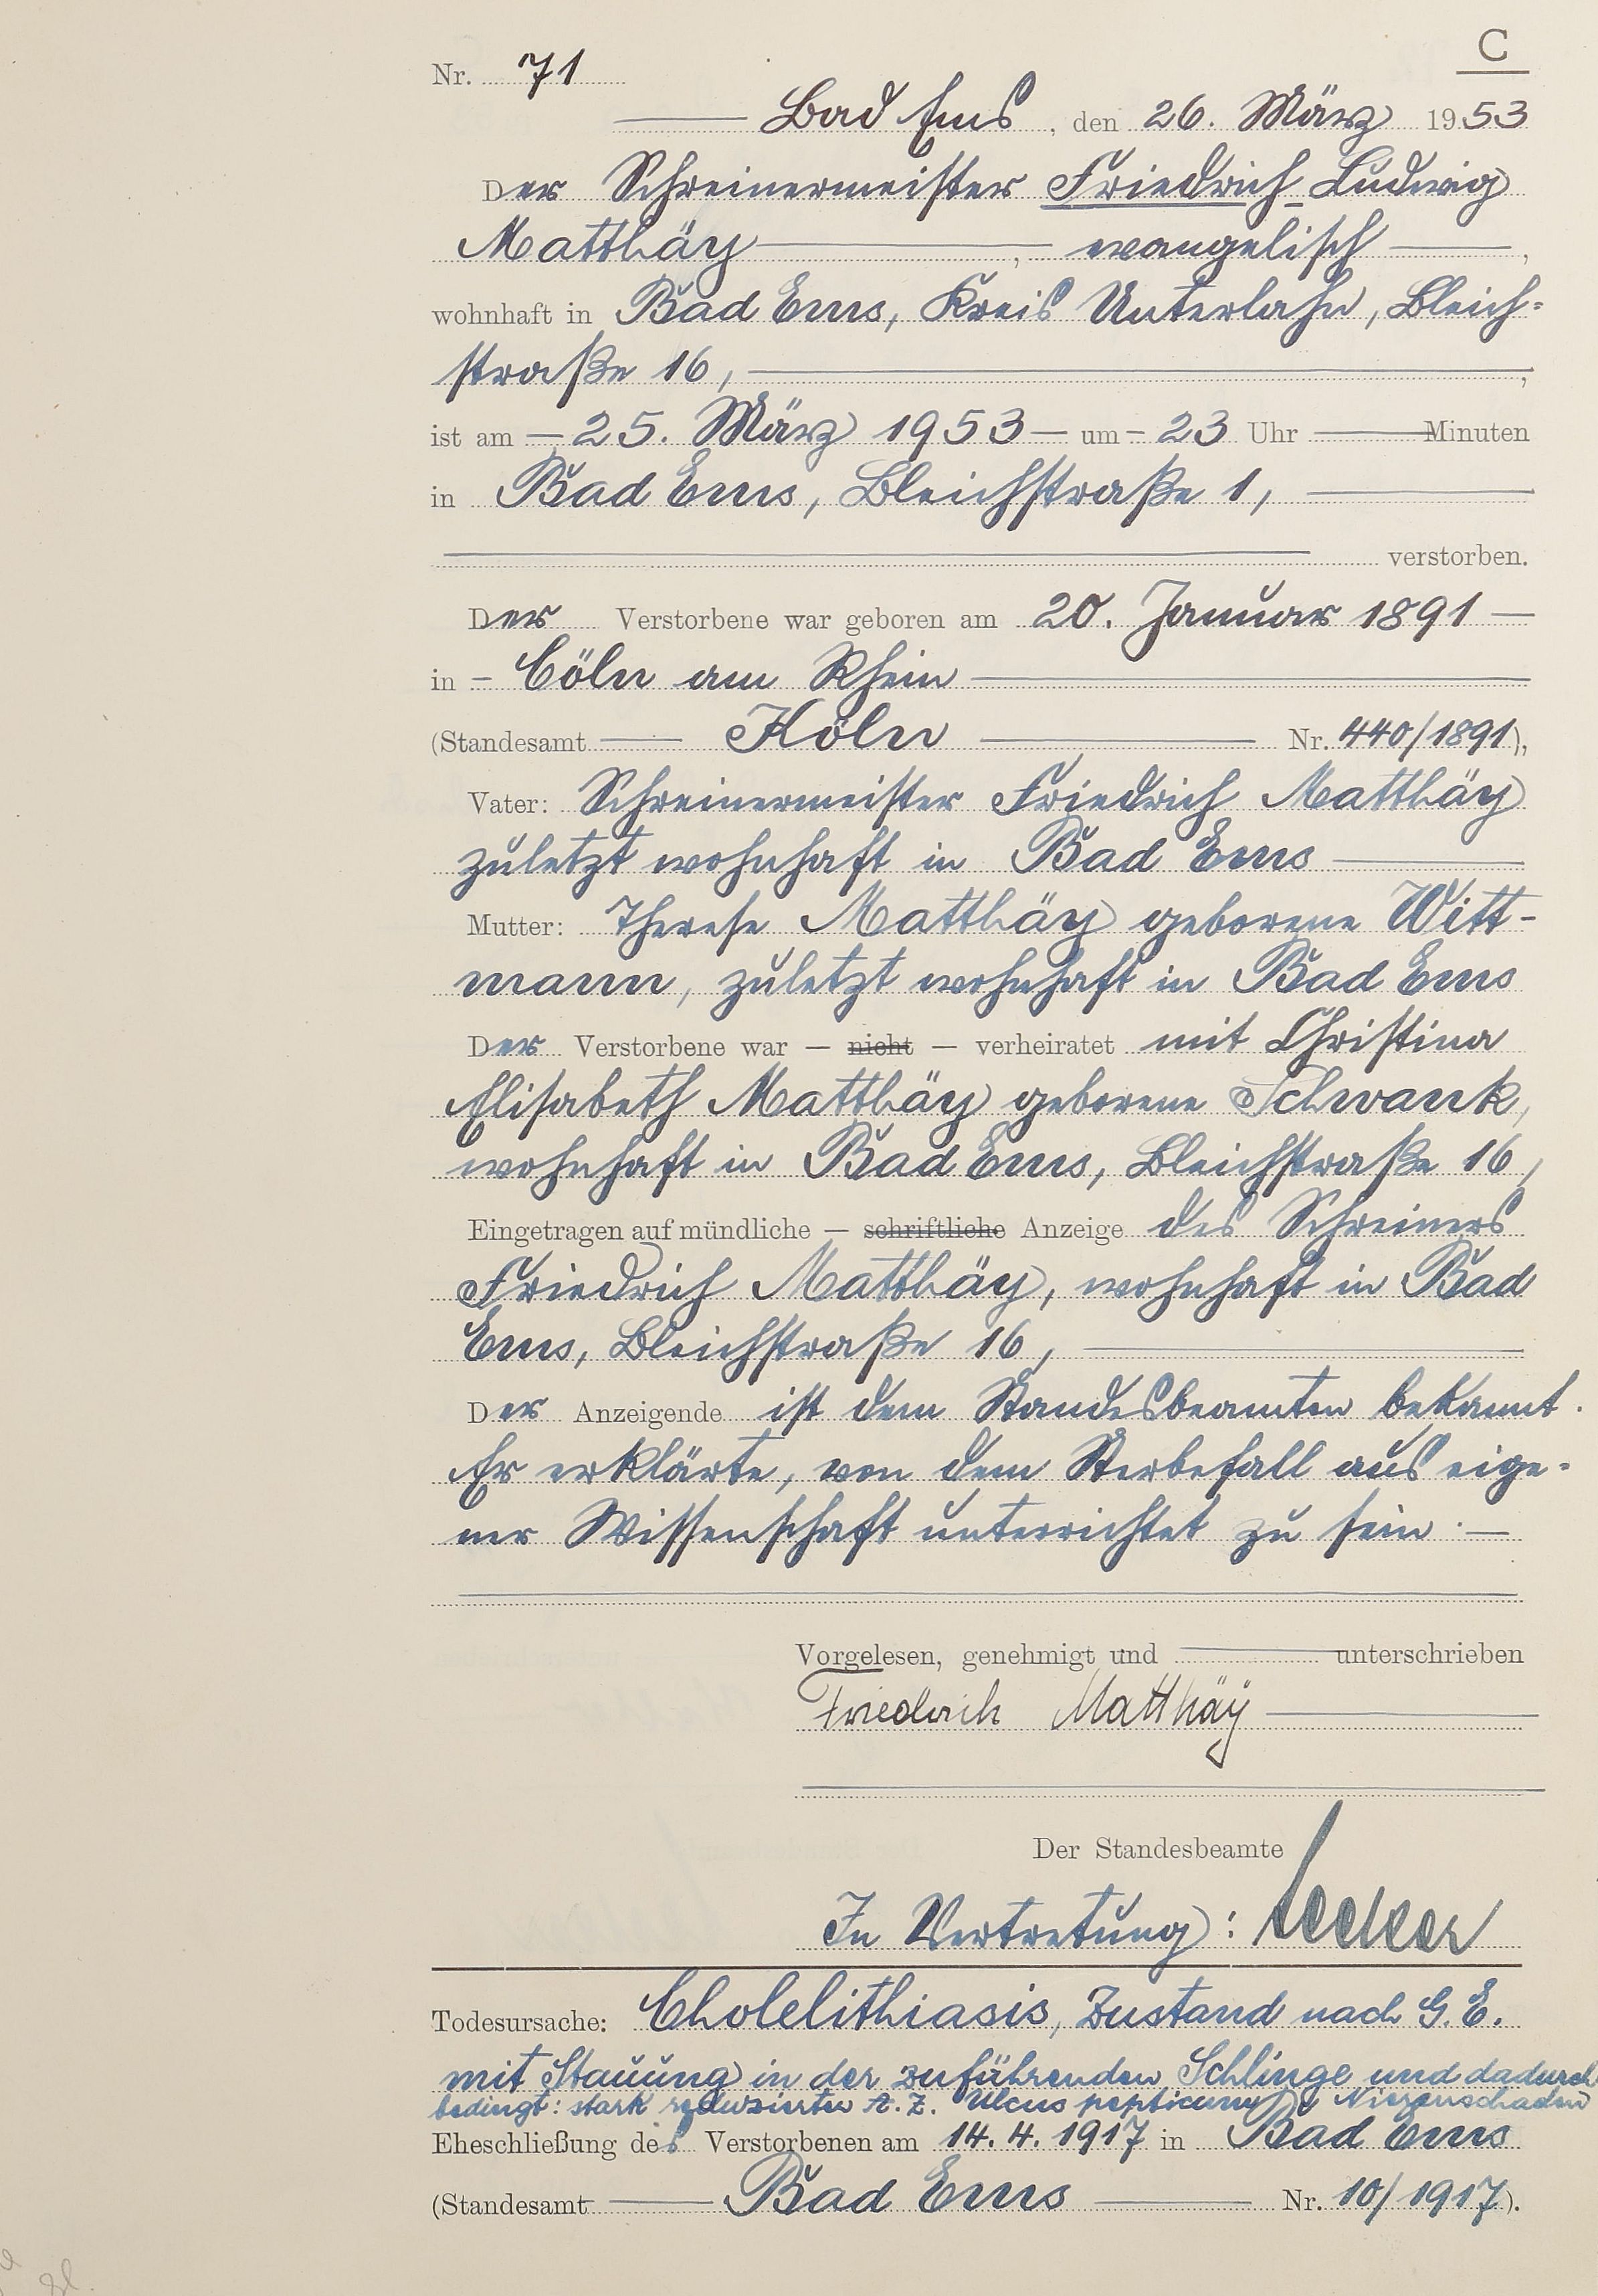 C
Nr. 71
Bad Ems, den 26. März 1953
Der Schreinermeister Friedrich Ludwig
Matthäy, evangelisch,
wohnhaft in Bad Ems, Kreis Unterlahn, Bleich-
straße 16,
ist am 25. März 1953 um 23 Uhr Minuten
in Bad Ems, Bleichstraße 1,
verstorben.
Der Verstorbene war geboren am 20. Januar 1891
in Cöln am Rhein
(Standesamt Köln Nr. 440/1891),
Vater: Schreinermeister Friedrich Matthäy
zuletzt wohnhaft in Bad Ems
Mutter: Therese Matthäy geborene Witt-
mann, zuletzt wohnhaft in Bad Ems
Der Verstorbene war — nicht — verheiratet mit Christina
Elisabeth Matthäy geborene Schwank,
wohnhaft in Bad Ems, Bleichstraße 16,
Eingetragen auf mündliche — schriftliche Anzeige des Schreiners
Friedrich Matthäy, wohnhaft in Bad
Ems, Bleichstraße 16,
Der Anzeigende ist dem Standesbeamten bekannt.
Er erklärte, von dem Sterbefall aus eige-
ner Wissenschaft unterrichtet zu sein.
Vorgelesen, genehmigt und unterschrieben
Friedrich Matthäy
Der Standesbeamte
In Vertretung:
Todesursache: Cholelithiasis, Zustand nach G. E.
mit Stauung in der zuführenden Schlinge und dadurch
bedingt: stark reduzierter A. Z. Ulcus pepticum Nierenschaden
Eheschließung des Verstorbenen am 14. 4. 1917 in Bad Ems
(Standesamt Bad Ems Nr. 10/1917).